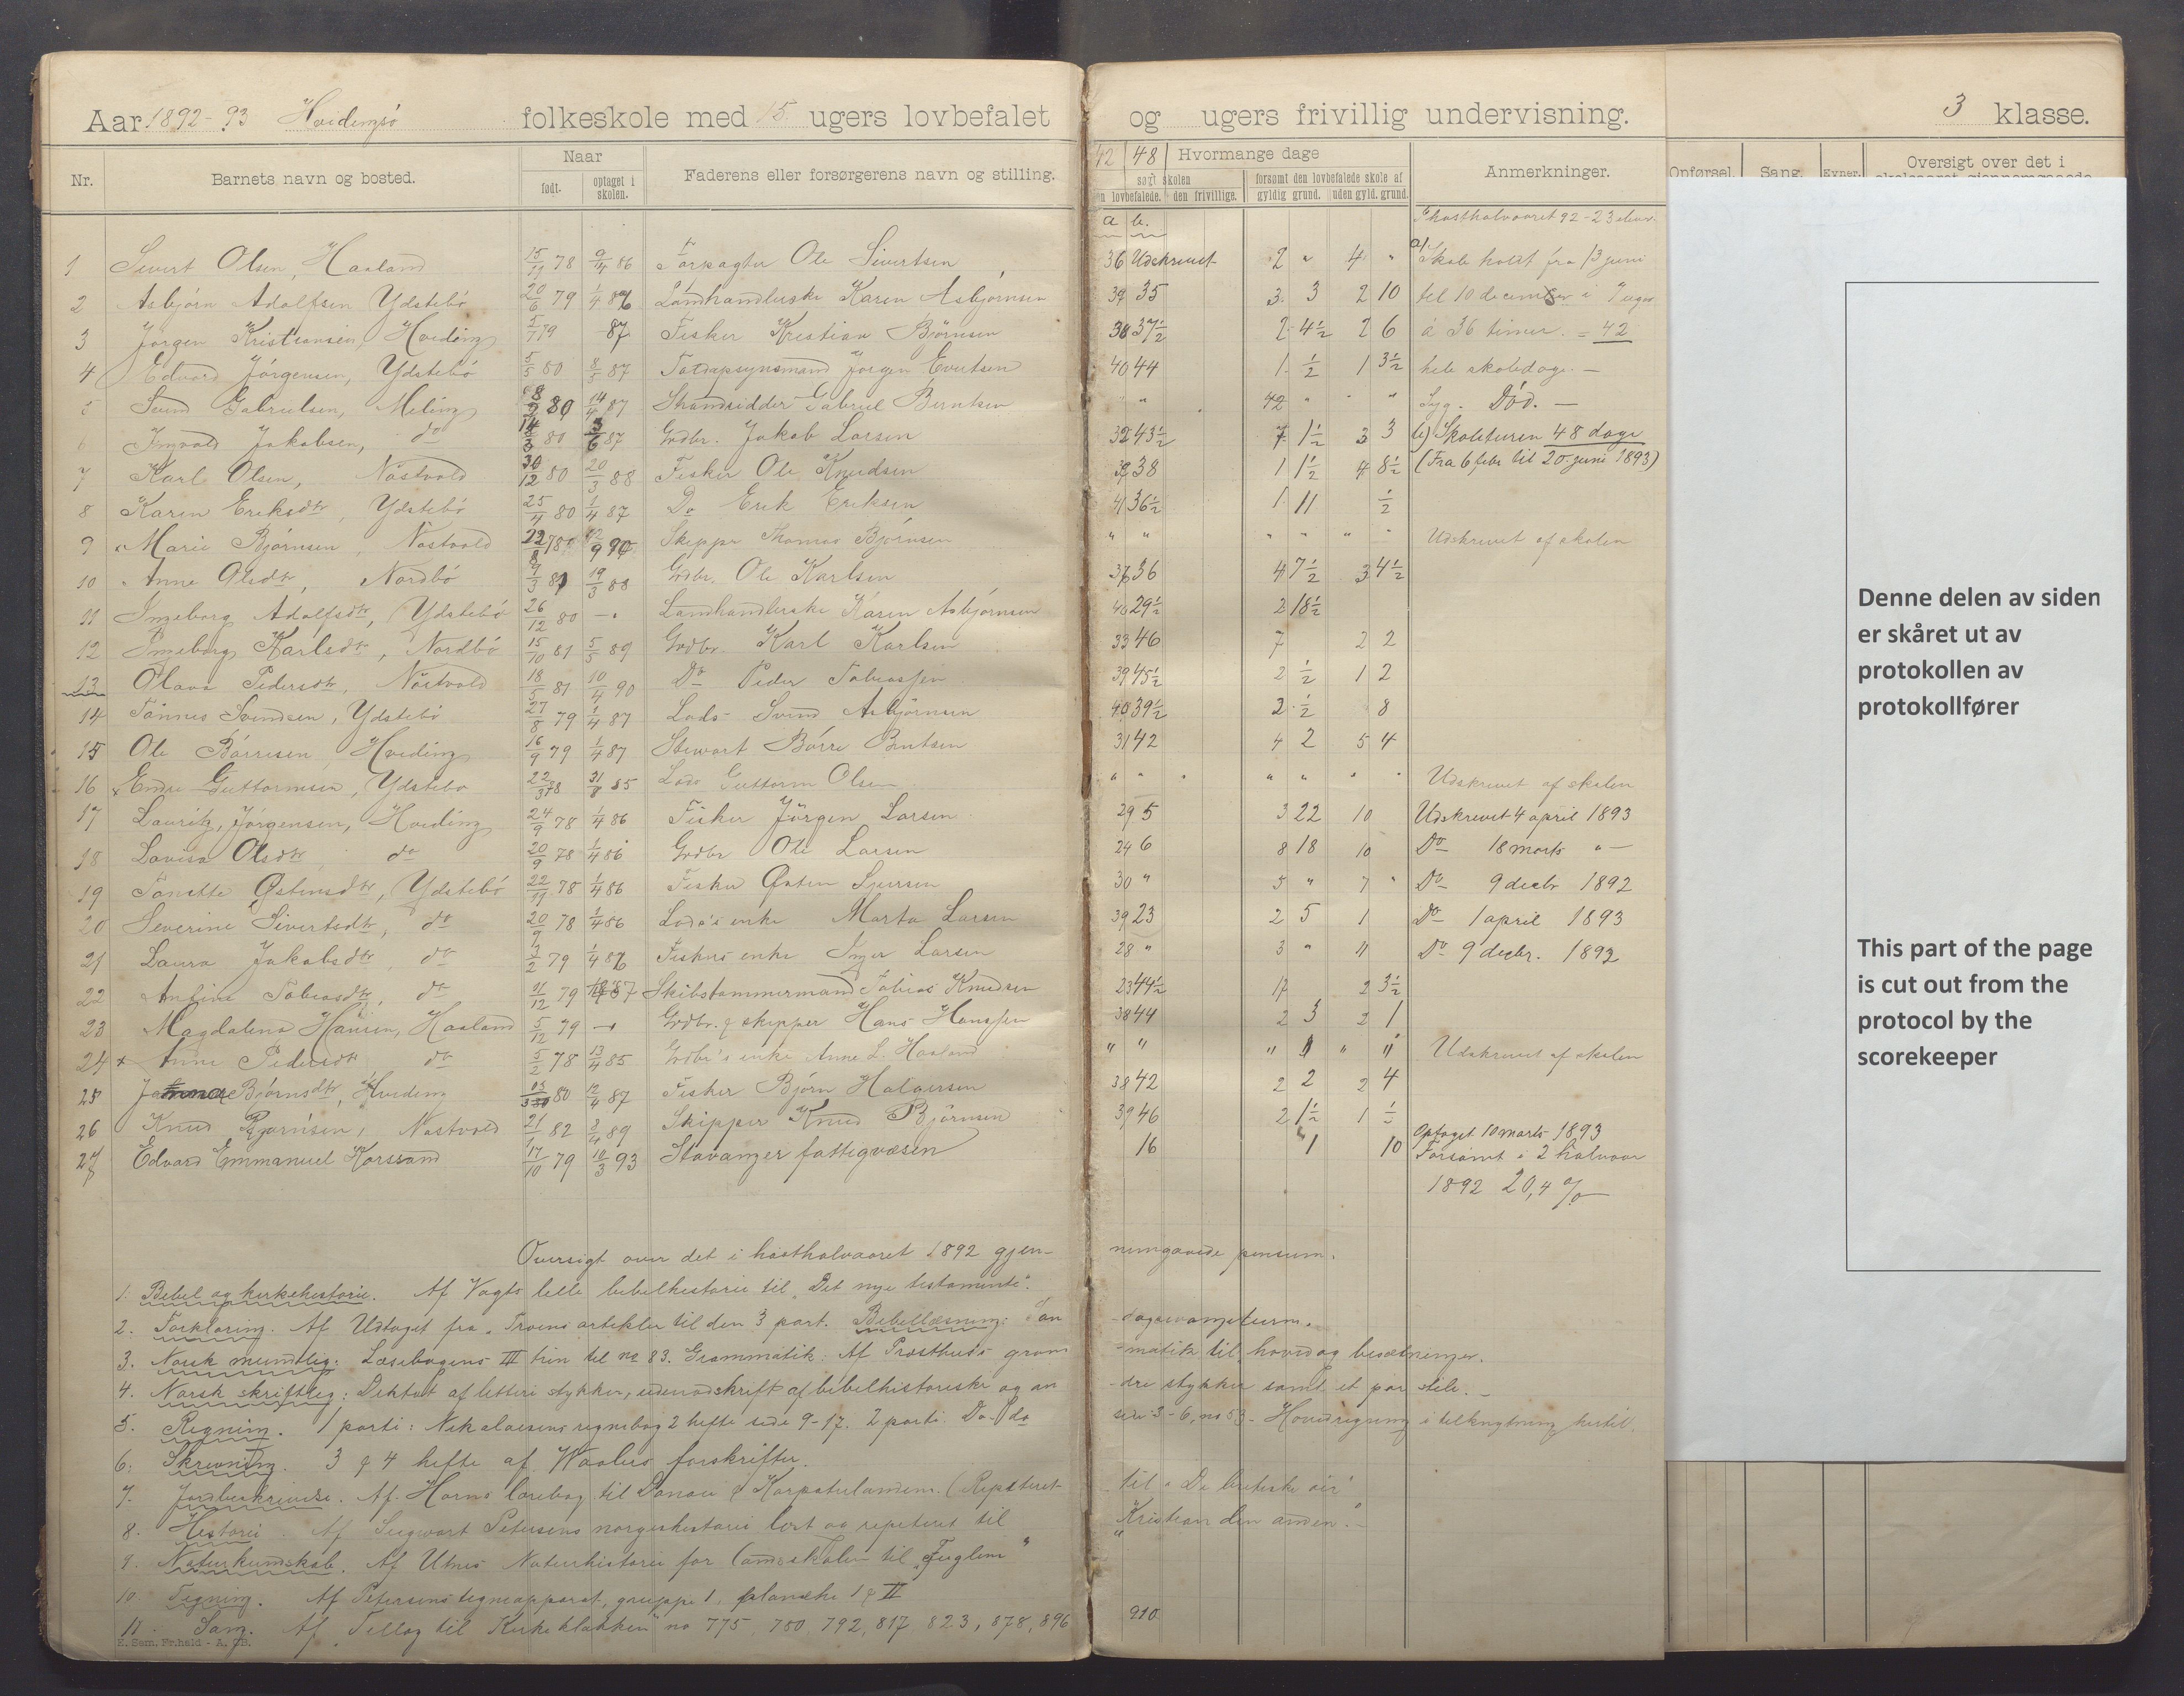 Aar 1892-93 Hvidingsö folkeskole med 15 ugers lovbefalet og ugers frivillig undervisning. 3 klasse.
Nr. Barnets navn og bosted. Naar født. optaget i skolen. Faderens eller forsørgerens navn og stilling. 42 48 Hvormange dage søgt skolen den lovbefalede. den frivillige. forsømt den lovbefalede skole af gyldig grund. uden gyld. grund. Anmerkninger. Opførsel. Sang. Oversigt over det i
a b. I hösthalvaaret 92 - 23 elever.
1 Sivert Olsen, Haaland 15/11 78 9/4 86 Forpagter Ole Sivertsen 36 Udskrevet 2 " 4 " a) Skole holdt fra 13 juni
2 Asbjörn Adolfsen Ydstebö 20/6 79 1/4 86 Landhandlerske Karen Asbjörnsen 39 35 3 3 2 10 til 10 december i 7 uger
3 Jörgen Kristiansen, Hviding 5/7 79 87 Fisker Kristian Björnsen 38 37½ 2 4½ 2 6 à 36 timer. = 42
4 Edvard Jörgensen, Ydstebö 5/5 80 8/5 87 Jörgen Evertsen 40 44 1 ½ 1 3½ hele skoledage. —
5 Svend Gabrielsen, Meling 80 14/4 87 Strandsidder Gabriel Berntsen " " 42 " " " Syg. Död. —
6 Ingvald Jakobsen, do 14/3 80 3/6 87 Grdbr. Jakob Larsen 32 43½ 7 1½ 3 3 b) Skoleturen 48 dage
7 Karl Olsen, Nöstvold 30/12 80 20/3 88 Fisker Ole Knudsen 38 1 1½ 4 8½ (Fra 6 febr til 20. juni 1893)
8 Karen Eriksdtr, Ydstebö 25/4 80 1/4 87 Do Erik Eriksen 41 36½ 1 11 ½
9 Marie Björnsen, Nöstvold Skipper Thomas Björnsen " " " " " " Udskrevet af skolen
10 Anne Olsdtr, Nordbö 9/3 81 19/3 88 Grdbr. Ole Karlsen 37 36 4 7½ 3 4½
11 Ingeborg Adolfsdtr, Ydstebö 26/12 80 — Landhandlerske Karen Asbjörnsen 40 29½ 2 18½
12 Ingeborg Karlsdtr, Nordbö 15/10 81 5/5 89 Grdbr. Karl Karlsen 33 46 7 2 2
13 Olava Pedersdtr, Nöstvold 18/5 81 10/4 90 Do Peder Tobiassen 39 45½ 2 ½ 1 2
14 Tönnes Svendsen, Ydstebö 27/8 79 1/4 87 Lods Svend Asbjörnsen 40 39½ 2 ½ 8
15 Ole Börresen, Hviding 16/9 79 1/4 87 Stewart Börre Berntsen 31 42 4 2 5 4
16 Endre Guttormsen, Ydstebö 22/3 78 31/8 85 Lods Guttorm Olsen " " " " " " Udskrevet af skolen
17 Lauritz Jörgensen, Hviding 24/9 78 1/4 86 Fisker Jörgen Larsen 29 5 3 22 10 Udskrevet 4 april 1893
18 Lovisa Olsdtr do 20/9 78 1/4 86 Grdbr Ole Larsen 24 6 8 18 10 Do 18 marts " —
19 Tonette Östensdtr, Ydstebö 22/11 78 1/4 86 Fisker Östen Sjursen 30 " 5 " 7 " Do 9 decbr 1892
20 Severine Sivertsdtr, do 20/9 78 1/4 86 Lods's enke Marta Larsen 39 23 2 5 1 Do 1 april 1893
21 Laura Jakobsdtr, do 3/2 79 1/4 86 Fiskers enke Inger Larsen 28 " 3 " 11 Do 9 decbr. 1892
22 Antine Tobiasdtr, do 11/12 79 87 Skibstømmermand Tobias Knudsen 23 44½ 17 2 3½
23 Magdalena Hansen, Haaland 5/12 79 — Grdbr. & skipper Hans Hanssen 38 44 2 3 2 1
24 x Anne Pedersdtr do 5/2 78 13/4 85 Grdbr's enke Anne L. Haaland " " " " " Udskrevet af skolen
25 Björnsdtr, Hviding 80 12/4 87 Fisker Björn Halgersen 38 42 2 2 2 4
26 Knud Bjørnsen, Nöstvold 21/1 82 3/4 89 Skipper Knud Björnsen 39 46 2 1½ 1 ½
27 Edvard Emmanuel Korssand 17/10 79 10/3 93 Stavanger fattigvæsen 16 1 10 Optaget 10 marts 1893
Forsömt i 2 halvaar
1892 20,4 %
Oversigt over det i hösthalvaaret 1892 gjennemgaaede pensum.
1. Bibel og kirkehistorie. Af Vogts lille bibelhistorie til "Det nye testamente".
2. Forklaring. Af Udtoget fra "Troens artikler til den 3 part. Bibellæsning: Søndagsevangelierne.
3. Norsk mundtlig. Læsebogens III trin til no 83. Grammatik: Af Prosthus's grammatik til hoved og bisætninger.
4. Norsk skriftlig: Diktat af lettere stykker, udenadskrift af bibelhistoriske og andre stykker samt et par stile. —
5. Regning. 1 parti: Nikolaisens regnebog 2 hefte side 9-17. 2 parti: Do. do side 3-6, no 53 - Hovedregning i tilknytning hertil.
6. Skrivning. 3 & 4 hefte af Waalers forskrifter.
7. Jordbeskrivelse. Af Horns lærebog til Donau & Karpaterlandene. (Repeteret til "De britiske öer"
8. Historie. Af Siegwart Petersens norgeshistorie lært og repeteret til "Kristian den anden". —
9. Naturkundskab. Af Utnes Naturhistorie for landsskolen til "Fuglene"
10. Tegning. Af Petersens tegneapparat, gruppe 1, planche 1 & II
11. Sang. Af "Tillæg til Kirkeklokken" no 775, 780, 792, 817, 823, 878, 896 910
Denne delen av siden
er skåret ut av
protokollen av
protokollfører
This part of the page
is cut out from the
protocol by the
scorekeeper